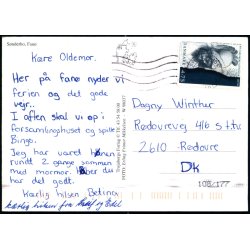 Sønderho, Fanø
Kære Oldemor.
Her på fanø nyder vi
ferien og det gode
vejr..
I aften skal vi op i
forsamlingshuset og spille
Bingo.
Jeg har været henne
rundt 2 gange sammen
med mormor. Ellers har
du har det godt.
Kærlig hilsen Betina
kærlig hilsen fra
Dagny Winther
Rødovrevej 416 s t.tv
2610 Rødovre
Dk
109/177